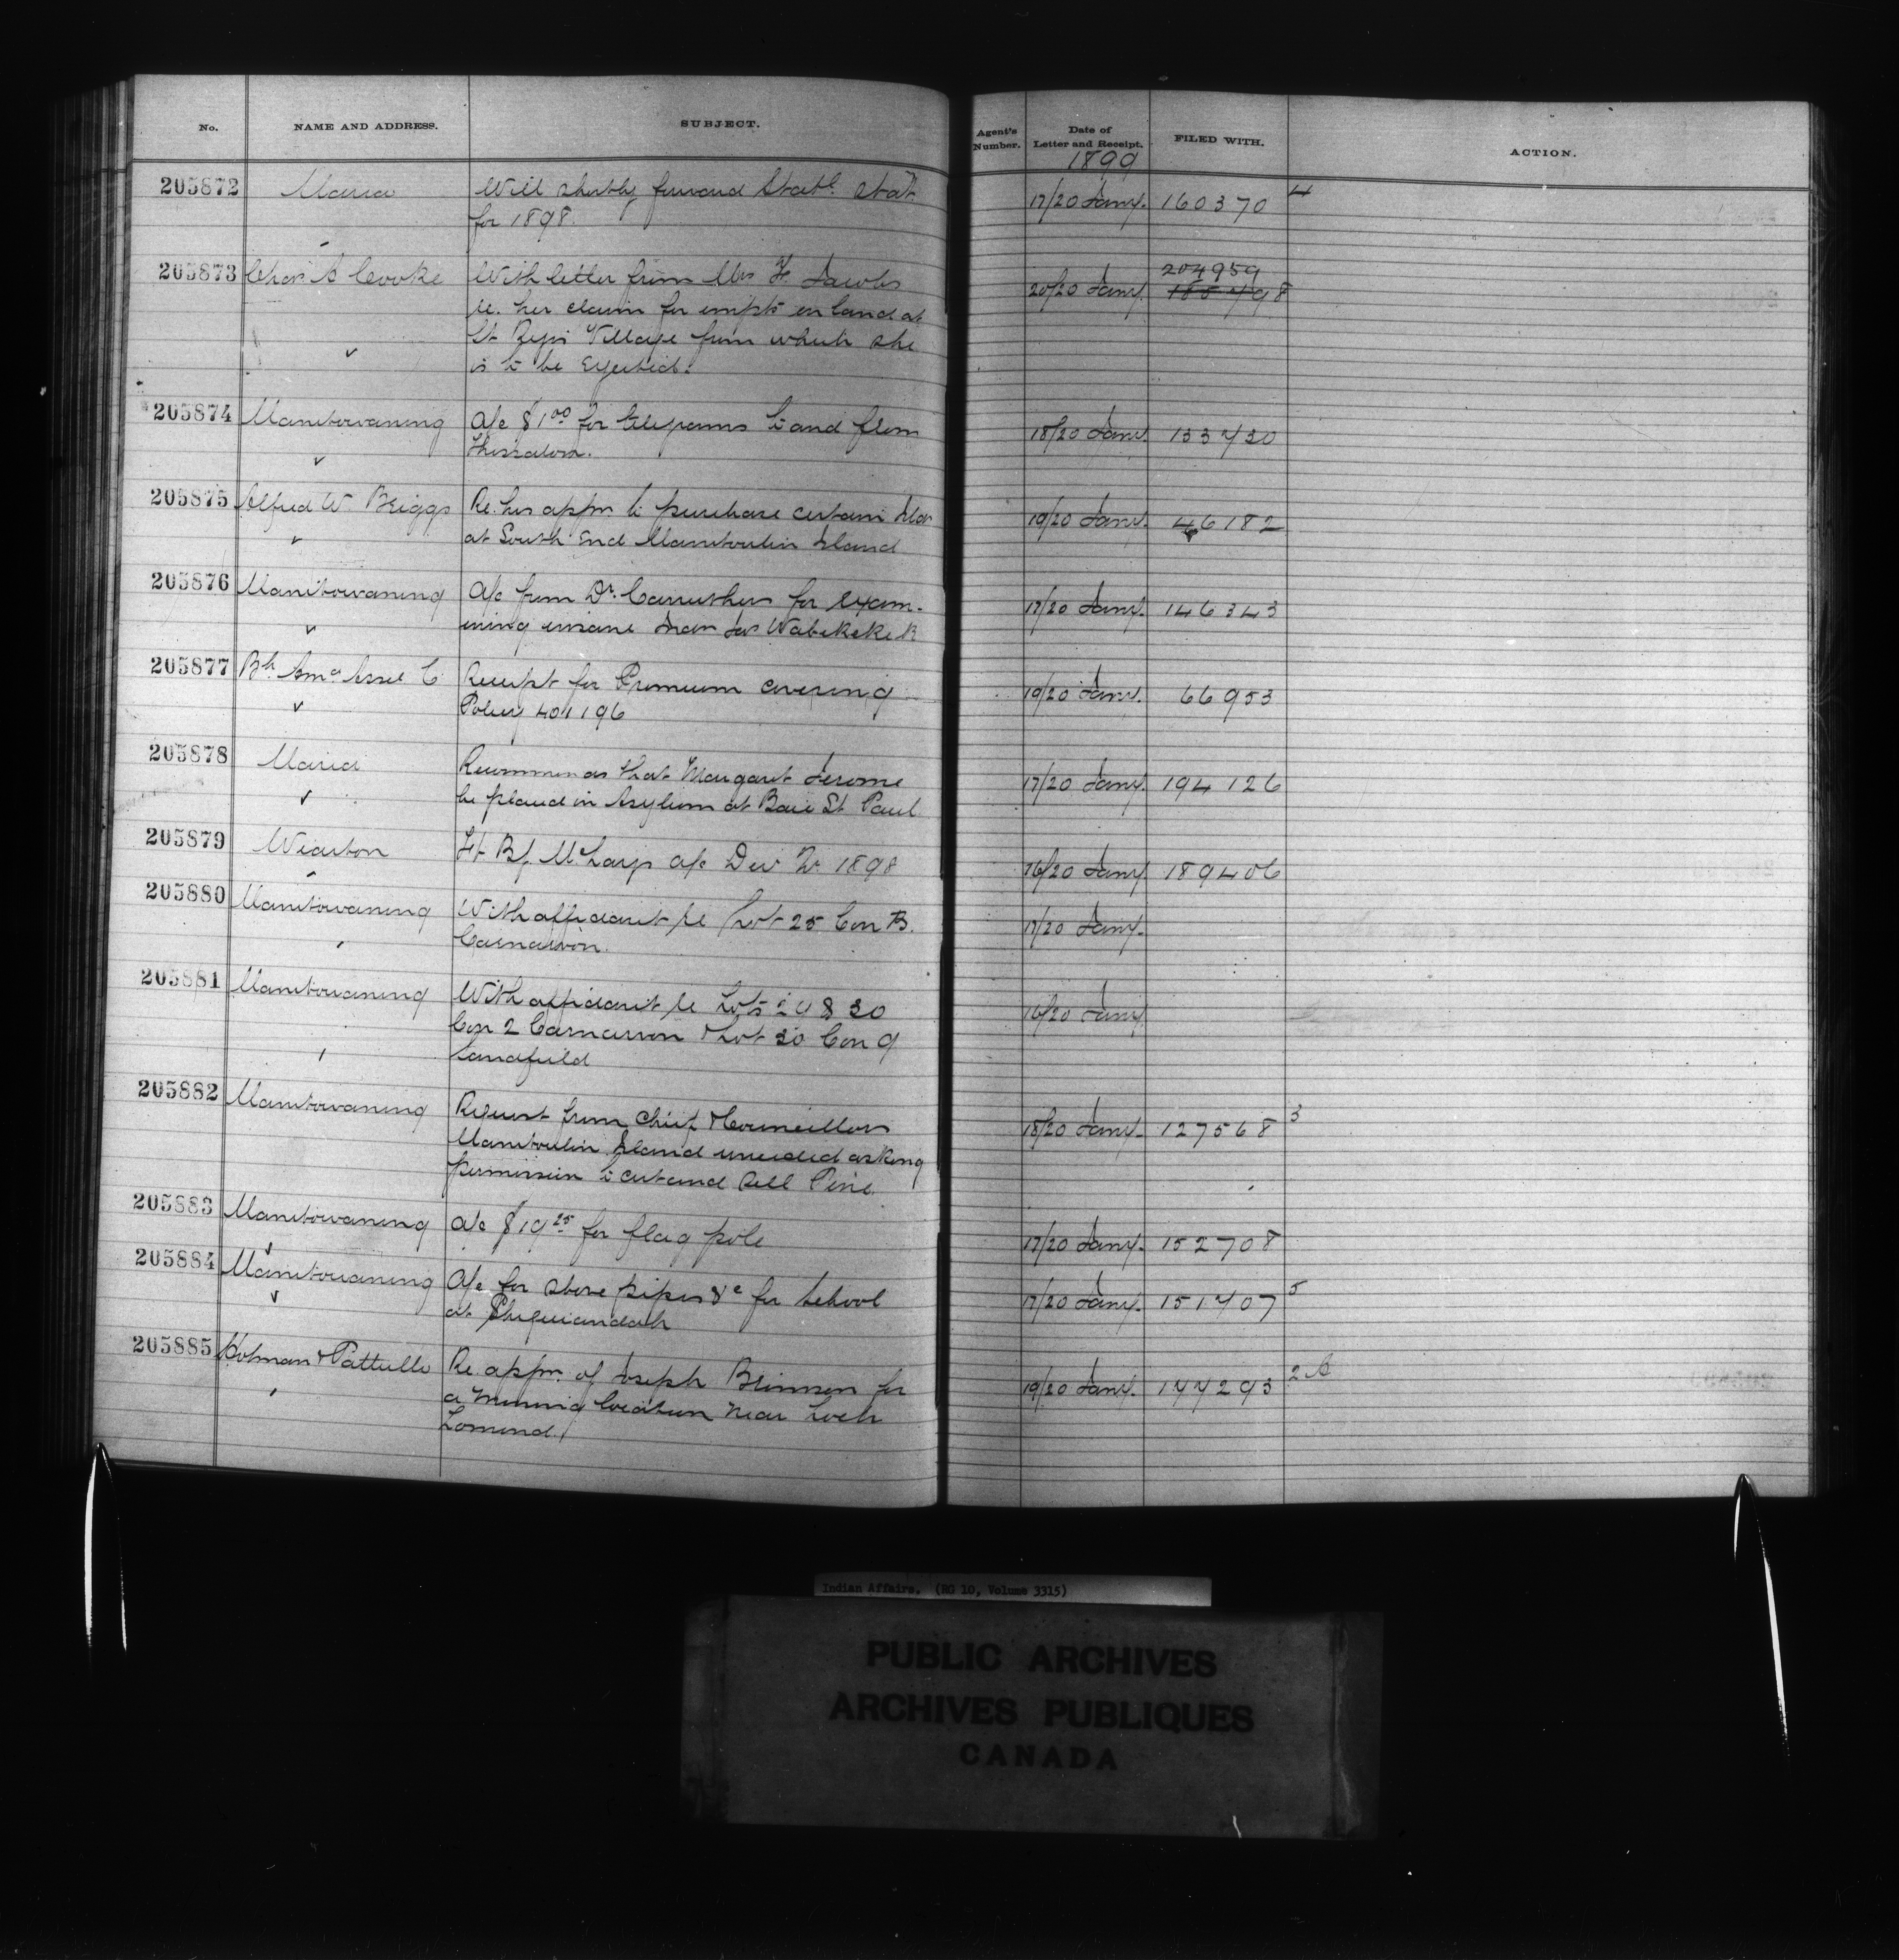 No. NAME AND ADDRESS. SUBJECT. Agent's Number. Date of Letter and Receipt. FILED WITH. ACTION.
1899
205872 Maria Will shortly forward Statl. Stat. 17/20 Jany. 160370 4
for 1898.
205873 Chas. A Cooke With letter from Mrs F. Jacobs 20/20 Jany. 204959
re. her claim for impts on land at
St Regis Village from which she
is to be Ejected.
205874 Manitowaning A/c $1.00 for telegrams to and from 18/20 Jany. 133730
Thessalon.
205875 Alfred W. Briggs Re. his appn. to purchase certain 19/20 Jany. 46182
at South End Manitoulin Island
205876 Manitowaning A/c from Dr. Carruthers for Exam- 17/20 Jany. 146343
ining insane man Jas Wabekekek
205877 Bh. Ama. Assce C. Receipt for Premium covering 19/20 Jany. 66953
Policy 401196
205878 Maria Recommends that Margaret Jerome 17/20 Jany. 194126
be placed in Asylum at Baie St. Paul
205879 Wiarton a/c Dec Qr. 1898 16/20 Jany. 189406
205880 Manitowaning With affidavit re Lot 25 Con B. 17/20 Jany.
Carnarvon.
205881 Manitowaning With affidavit re Lots 29 & 30 16/20 Jany.
Con 2 Carnarvon & Lot 30 Con 9
Sandfield
205882 Manitowaning Request from Chief & Councillors 18/20 Jany. 127568 3
Manitoulin Island unceded asking
permission to cut and sell Pine.
205883 Manitowaning A/c $19.25 for flag pole 17/20 Jany. 152708
205884 Manitowaning A/c for stove pipes &c for School 17/20 Jany. 151707 5
at Sheguiandah
205885 Holman & Pattullo Re. appn. of Joseph Brimson for 19/20 Jany. 177293 2 A
a Mining location near Loch
Lomond.
Indian Affairs. (RG 10, Volume 3315)
PUBLIC ARCHIVES
ARCHIVES PUBLIQUES
CANADA